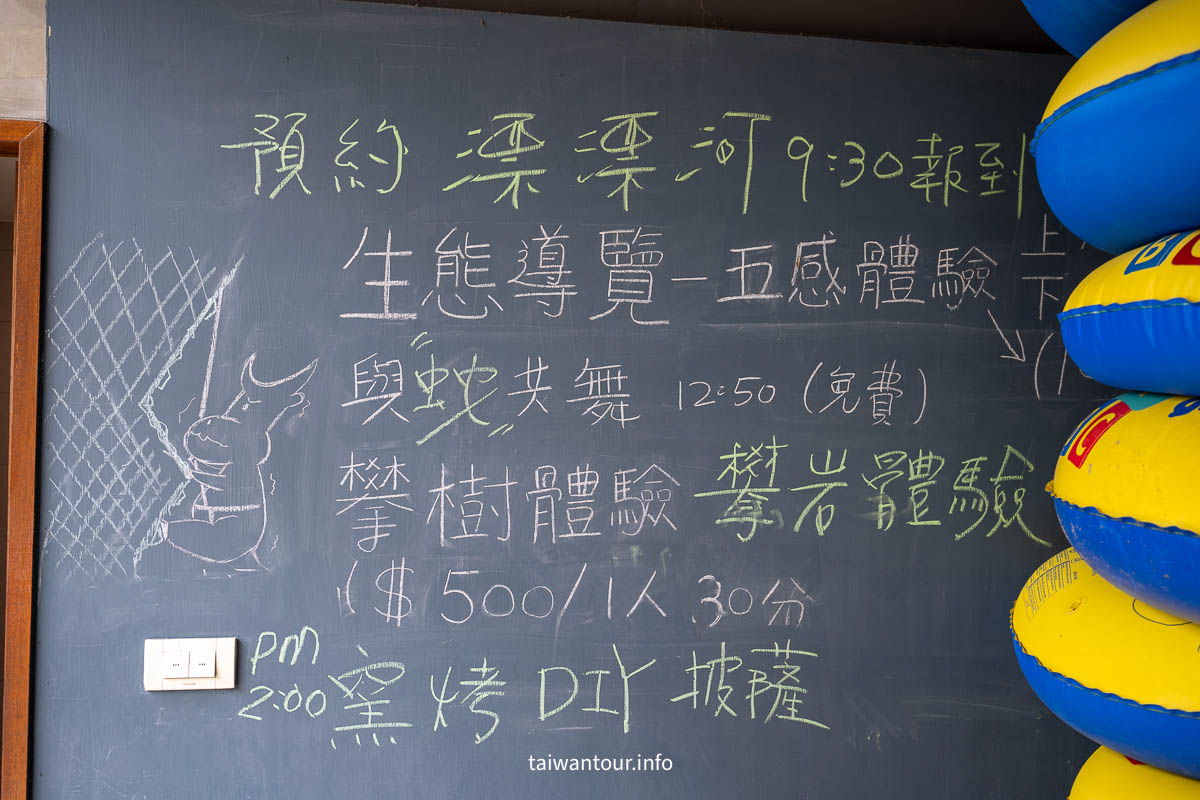 預約 漂漂河 9:30報到
生態導覽-五感體驗 上
下
與"蛇"共舞 12:50 (免費)
攀樹體驗 攀岩體驗
($500/1人 30分
pm
2:00 窯烤DIY 披薩
taiwantour.info